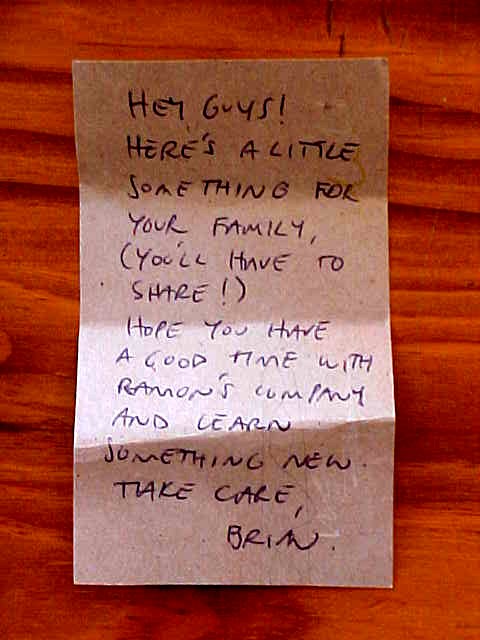 HEY GUYS!
HERE'S A LITTLE
SOMETHING FOR
YOUR FAMILY,
(YOU'LL HAVE TO
SHARE!)
HOPE YOU HAVE
A GOOD TIME WITH
RAMON'S COMPANY
AND LEARN
SOMETHING NEW.
TAKE CARE,
BRIAN.